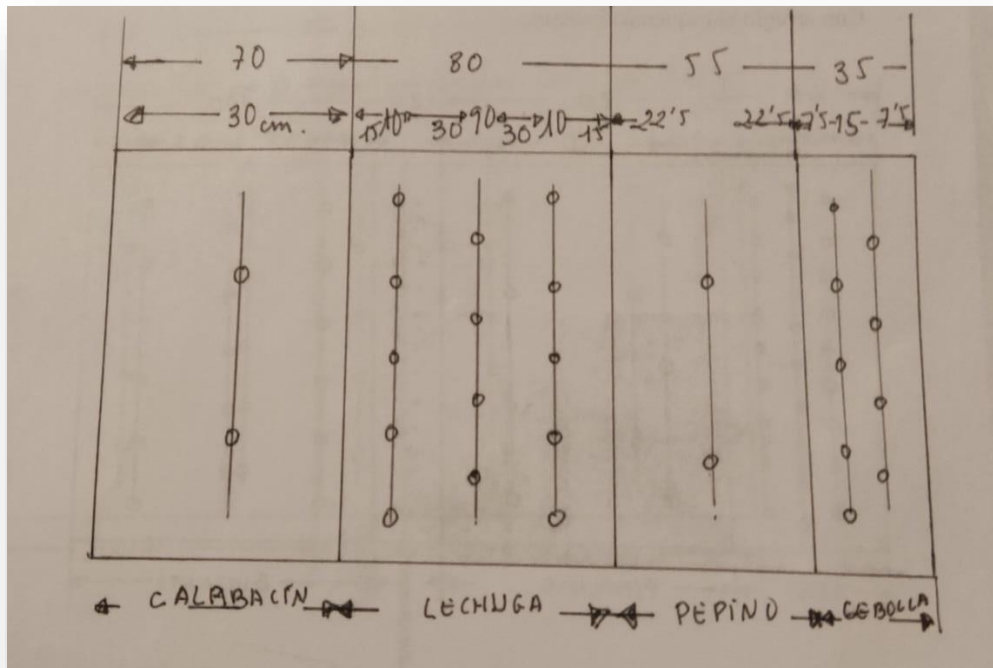 70 80 55 35
30 cm. 15 10 30 90 30 10 15 22'5 22'5 7'5-15-7'5
CALABACÍN LECHUGA PEPINO CEBOLLA